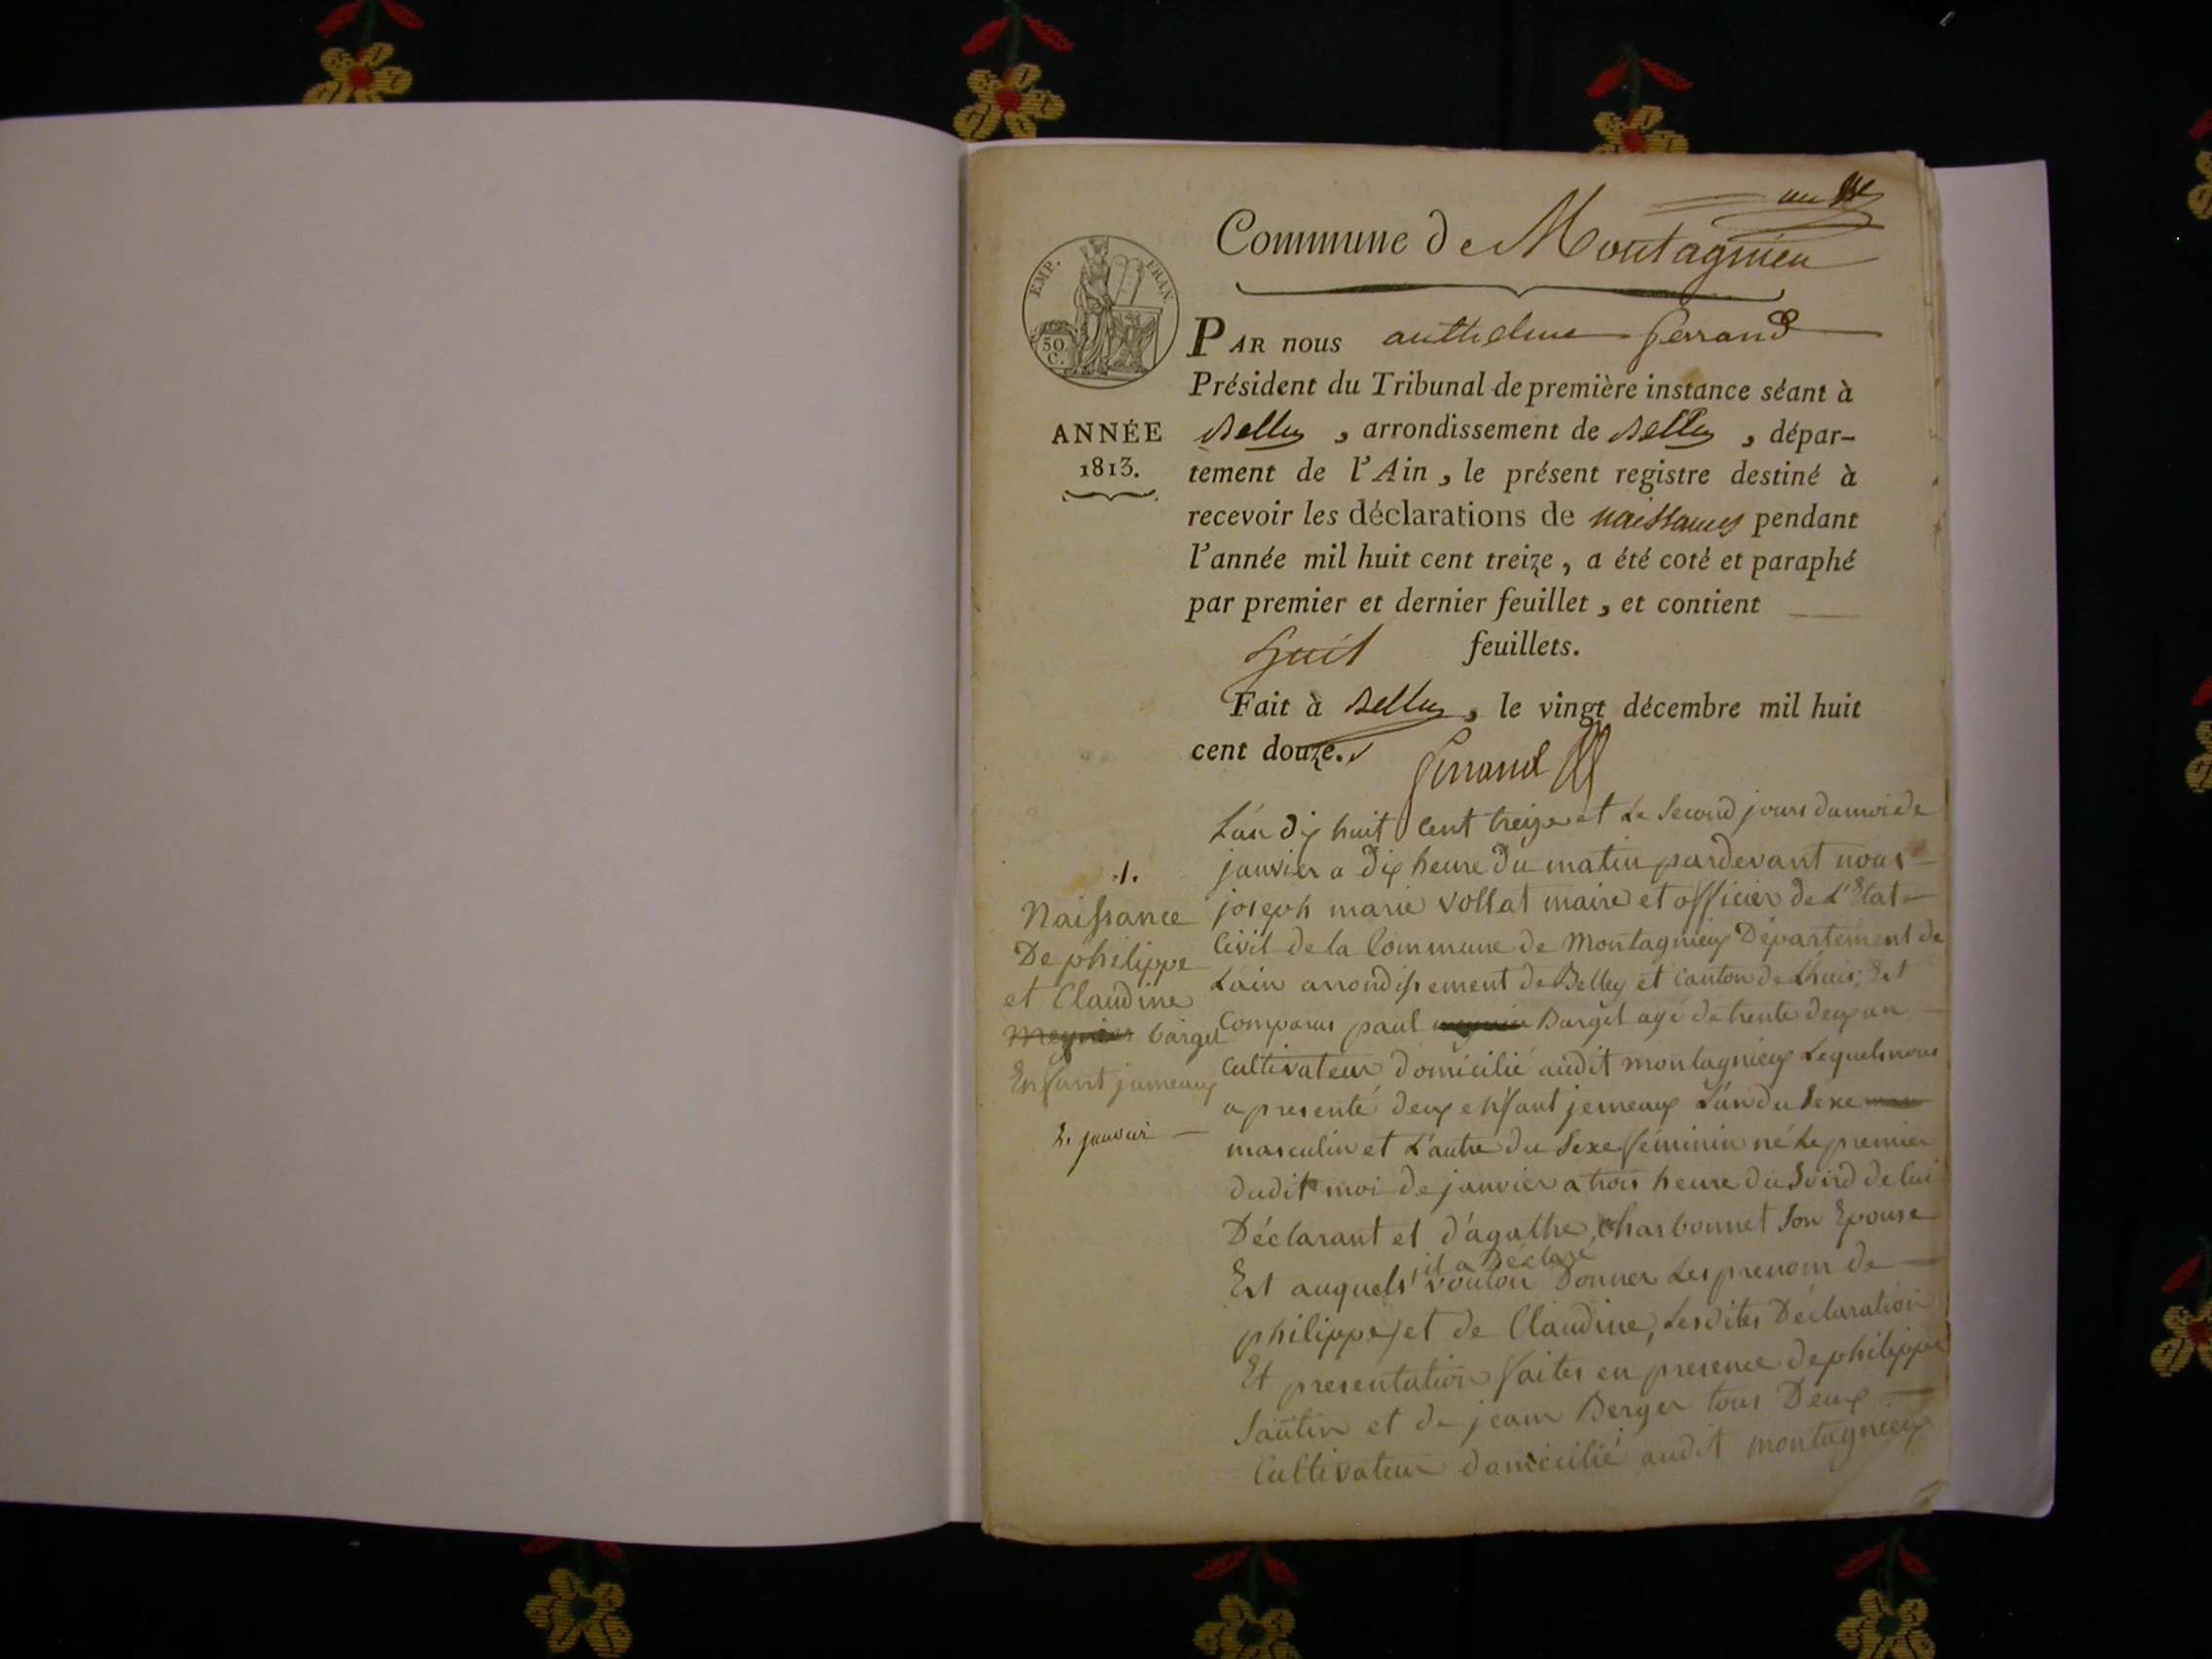 Commune de Montagnieu
EMP. FRAN.
50
C.
ANNÉE
1813.
PAR nous anthelme ferrand
Président du Tribunal de première instance séant à
Belley, arrondissement de Belley, dépar-
tement de l'Ain, le présent registre destiné à
recevoir les déclarations de naissances pendant
l'année mil huit cent treize, a été coté et paraphé
par premier et dernier feuillet, et contient
huit feuillets.
Fait à Belley, le vingt décembre mil huit
cent douze.
ferrand
1.
Naissance
De philippe
et Claudine
Meynier bargel
Enfant jumeaux
2. janvier
L'an dix huit Cent treize et Le Second jours du moi de
janvier a dix heure du matin pardevant nous
joseph marie vollat maire et officier de L'Etat
Civil de la Commune de Montagnieux Département de
Lain arrondissement de Belley et Canton de Lhuis; Est
Comparus paul Bargel agé de trente deux an
Cultivateur domicilié audit montagnieux Lequels nous
a presenté deux enfant jemeaux L'un du Sexe
masculin et L'autre du Sexe féminin né Le premier
dudit moi de janvier a trois heure du Soird de lui
Déclarant et d'agathe Charbonnet Son Epouse
Est auquels il a Déclaré vouloir Donner Les prenom de
philippe et de Claudine, Lesdites Déclaration
Et presentation faites en presence de philippe
Sautin et de jean Berger tous Deux
Cultivateur domicilié audit montagnieux